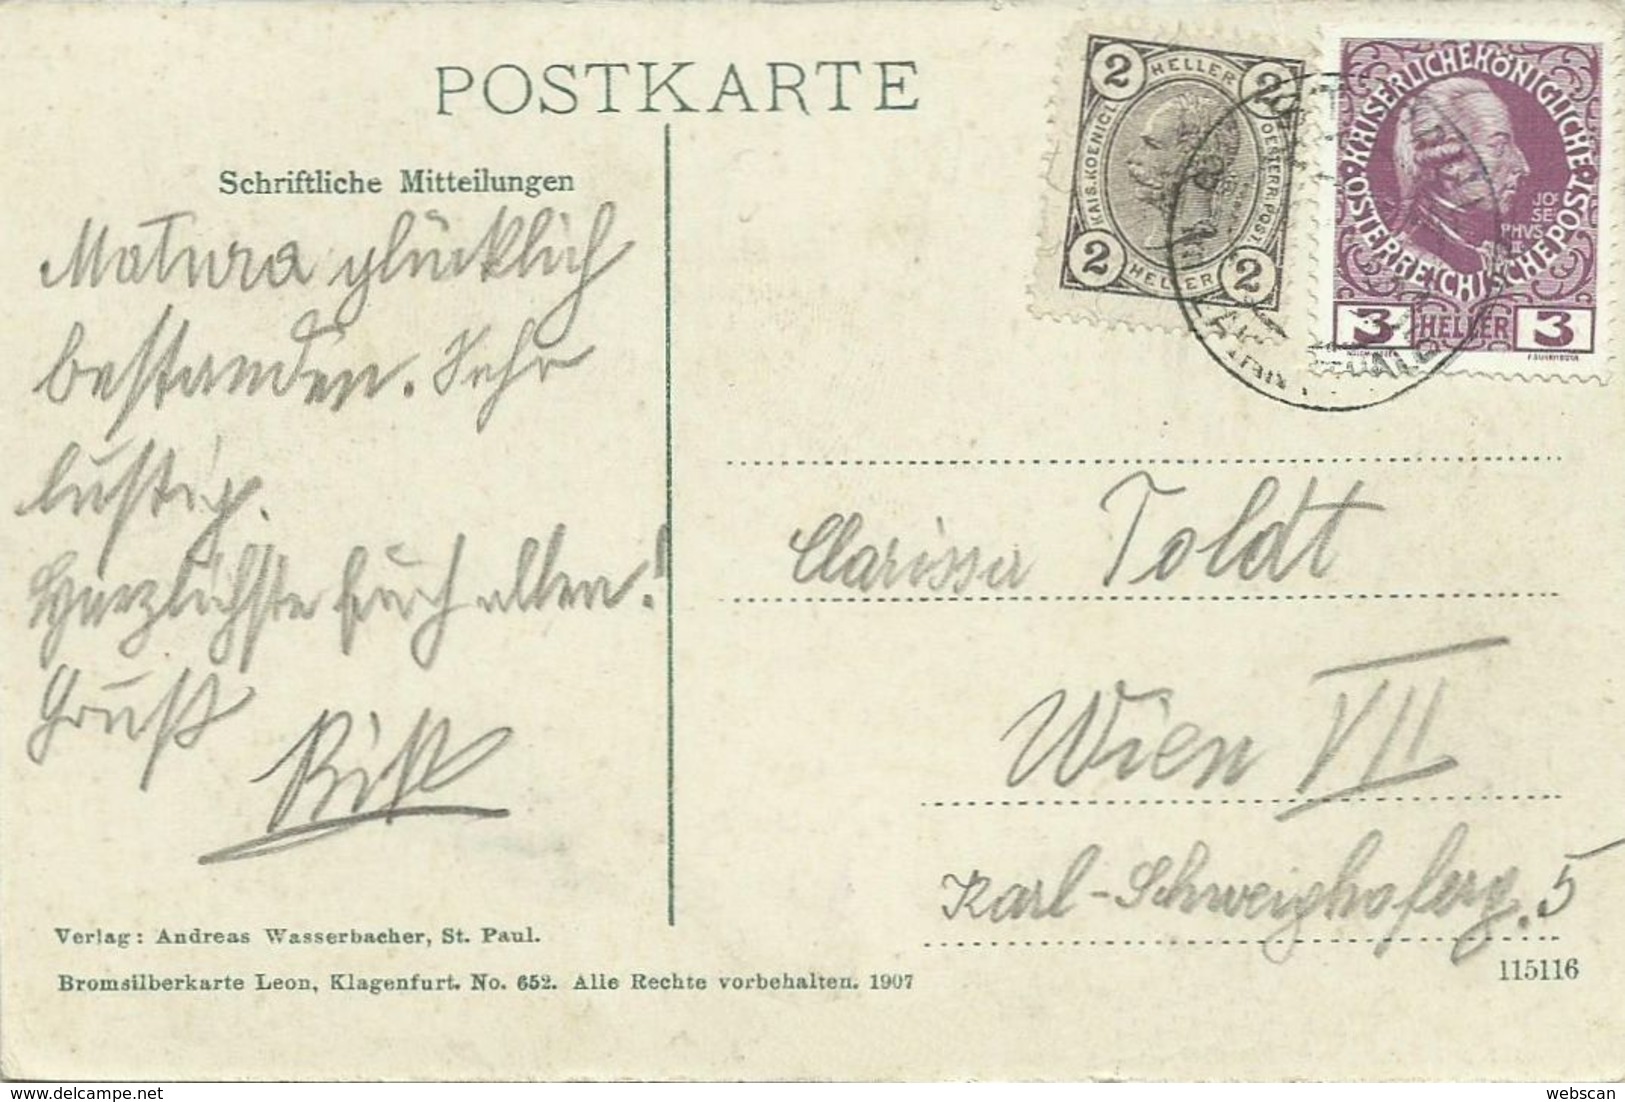 POSTKARTE
Schriftliche Mitteilungen
Matura glücklich
bestanden. Sehr
lustig.
Herzlichste Euch allen!
Gruß
2 HELLER 2
KAIS. KOENIGL. OESTERR. POST.
2 HELLER 2
KAISERLICHE KÖNIGLICHE
ÖSTERREICHISCHE POST
JO
SE
PHVS
II
3 HELLER 3
Clarissa Toldt
Wien VII
Karl-Schweighoferg. 5
Verlag: Andreas Wasserbacher, St. Paul.
Bromsilberkarte Leon, Klagenfurt. No. 652. Alle Rechte vorbehalten. 1907
115116
http://www.delcampe.net
webscan